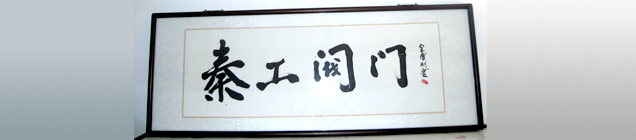 秦工阀门